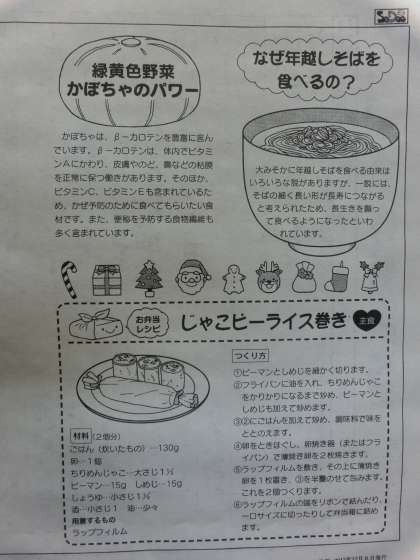 緑黄色野菜
かぼちゃのパワー
かぼちゃは、β－カロテンを豊富に含ん
でいます。β－カロテンは、体内でビタミ
ンAにかわり、皮膚やのど、鼻などの粘膜
を正常に保つ働きがあります。そのほか、
ビタミンC、ビタミンEも含まれているた
め、かぜ予防のために食べてもらいたい食
材です。また、便秘を予防する食物繊維も
多く含まれています。
なぜ年越しそばを
食べるの？
大みそかに年越しそばを食べる由来は
いろいろな説がありますが、一説には、
そばの細く長い形が長寿につながる
と考えられたため、長生きを願っ
て食べるようになったといわ
れています。
お弁当
レシピ
じゃこピーライス巻き
主食
材料(２個分)
ごはん（炊いたもの）…130g
卵…１個
ちりめんじゃこ…大さじ1½
ピーマン…15g しめじ…15g
しょうゆ…小さじ1½
酒…小さじ1 油…少々
用意するもの
ラップフィルム
つくり方
①ピーマンとしめじを細かく切ります。
②フライパンに油を入れ、ちりめんじゃこ
をかりかりになるまで炒め、ピーマンと
しめじも加えて炒めます。
③②にごはんを加えて炒め、調味料で味を
ととのえます。
④卵をときほぐし、卵焼き器（またはフラ
イパン）で薄焼き卵を２枚焼きます。
⑤ラップフィルムを敷き、その上に薄焼き
卵を１枚置き、③を半量のせて包みます。
これを２個つくります。
⑥ラップフィルムの端をリボンで結んだり、
一口サイズに切ったりして弁当箱に詰め
ます。